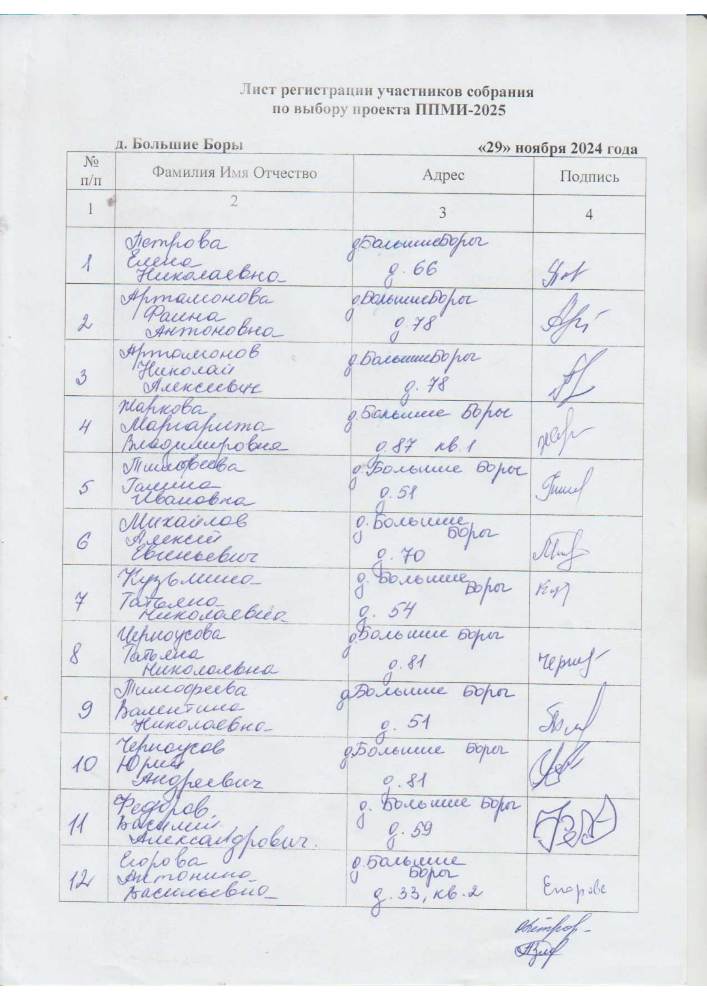 Лист регистрации участников собрания
по выбору проекта ППМИ-2025
д. Большие Боры «29» ноября 2024 года
№ п/п Фамилия Имя Отчество Адрес Подпись
1 2 3 4
Петрова д.Большие Боры
1 Елена
Николаевна д. 66
Артамонова д.Большие Боры
2 Фаина
Антоновна д. 78
Артамонов д.Большие Боры
3 Николай
Алексеевич д. 78
Жаркова д.Большие Боры
4 Маргарита
Владимировна д.87 кв.1
Тимофеева д.Большие Боры
5 Галина
Ивановна д.51
Михайлов д.Большие
6 Алексей Боры
Евгеньевич д. 70
Кузьмина д. Большие
7 Татьяна Боры
Николаевна д. 54
Черноусова д.Большие Боры
8 Татьяна
Николаевна д.81
Тимофеева д.Большие Боры
9 Валентина
Николаевна д. 51
Черноусов д.Большие Боры
10 Юрий
Андреевич д.81
Федоров д. Большие Боры
11 Василий д. 59
Александрович.
Егорова д.Большие
12 Антонина Боры
Васильевна д.33, кв.2 Егорова